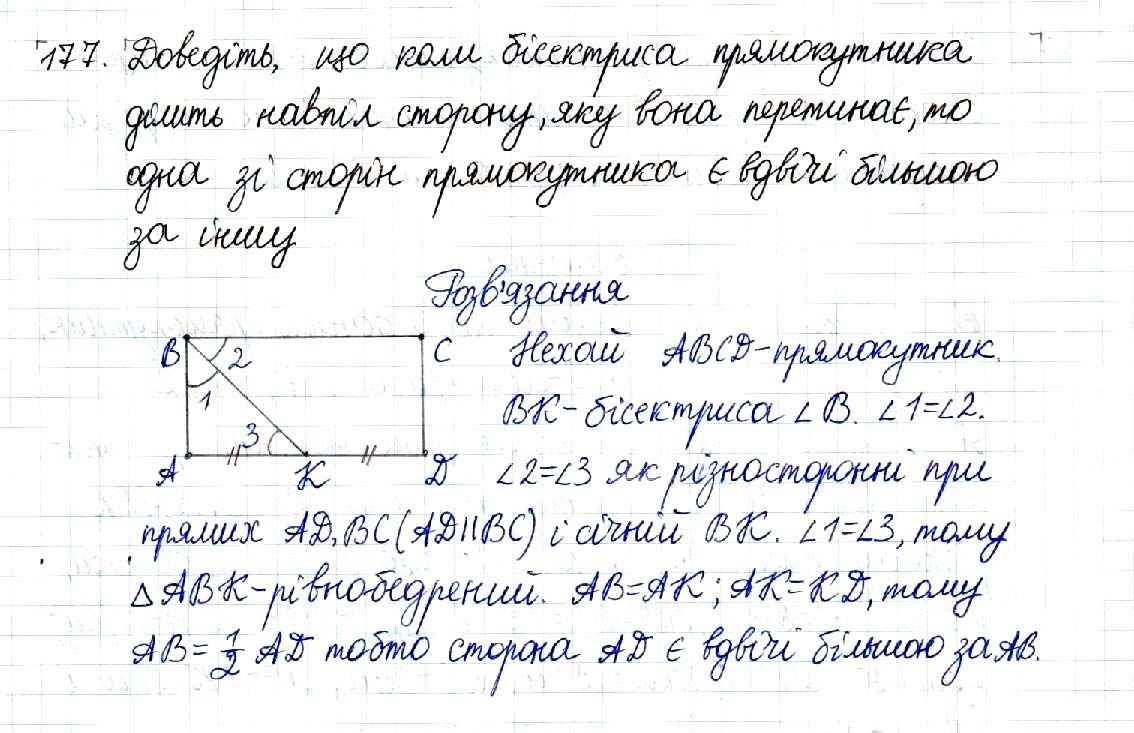 177. Доведіть, що коли бісектриса прямокутника
ділить навпіл сторону, яку вона перетинає, то
одна зі сторін прямокутника є вдвічі більшою
за іншу
Розв'язання
B 2 C Нехай ABCD - прямокутник.
1 BK - бісектриса ∠B. ∠1=∠2.
3
A K D ∠2=∠3 як різносторонні при
прямих AD, BC (AD||BC) і січній BK. ∠1=∠3, тому
△ABK - рівнобедрений. AB=AK; AK=KD, тому
AB = 1/2 AD тобто сторона AD є вдвічі більшою за AB.